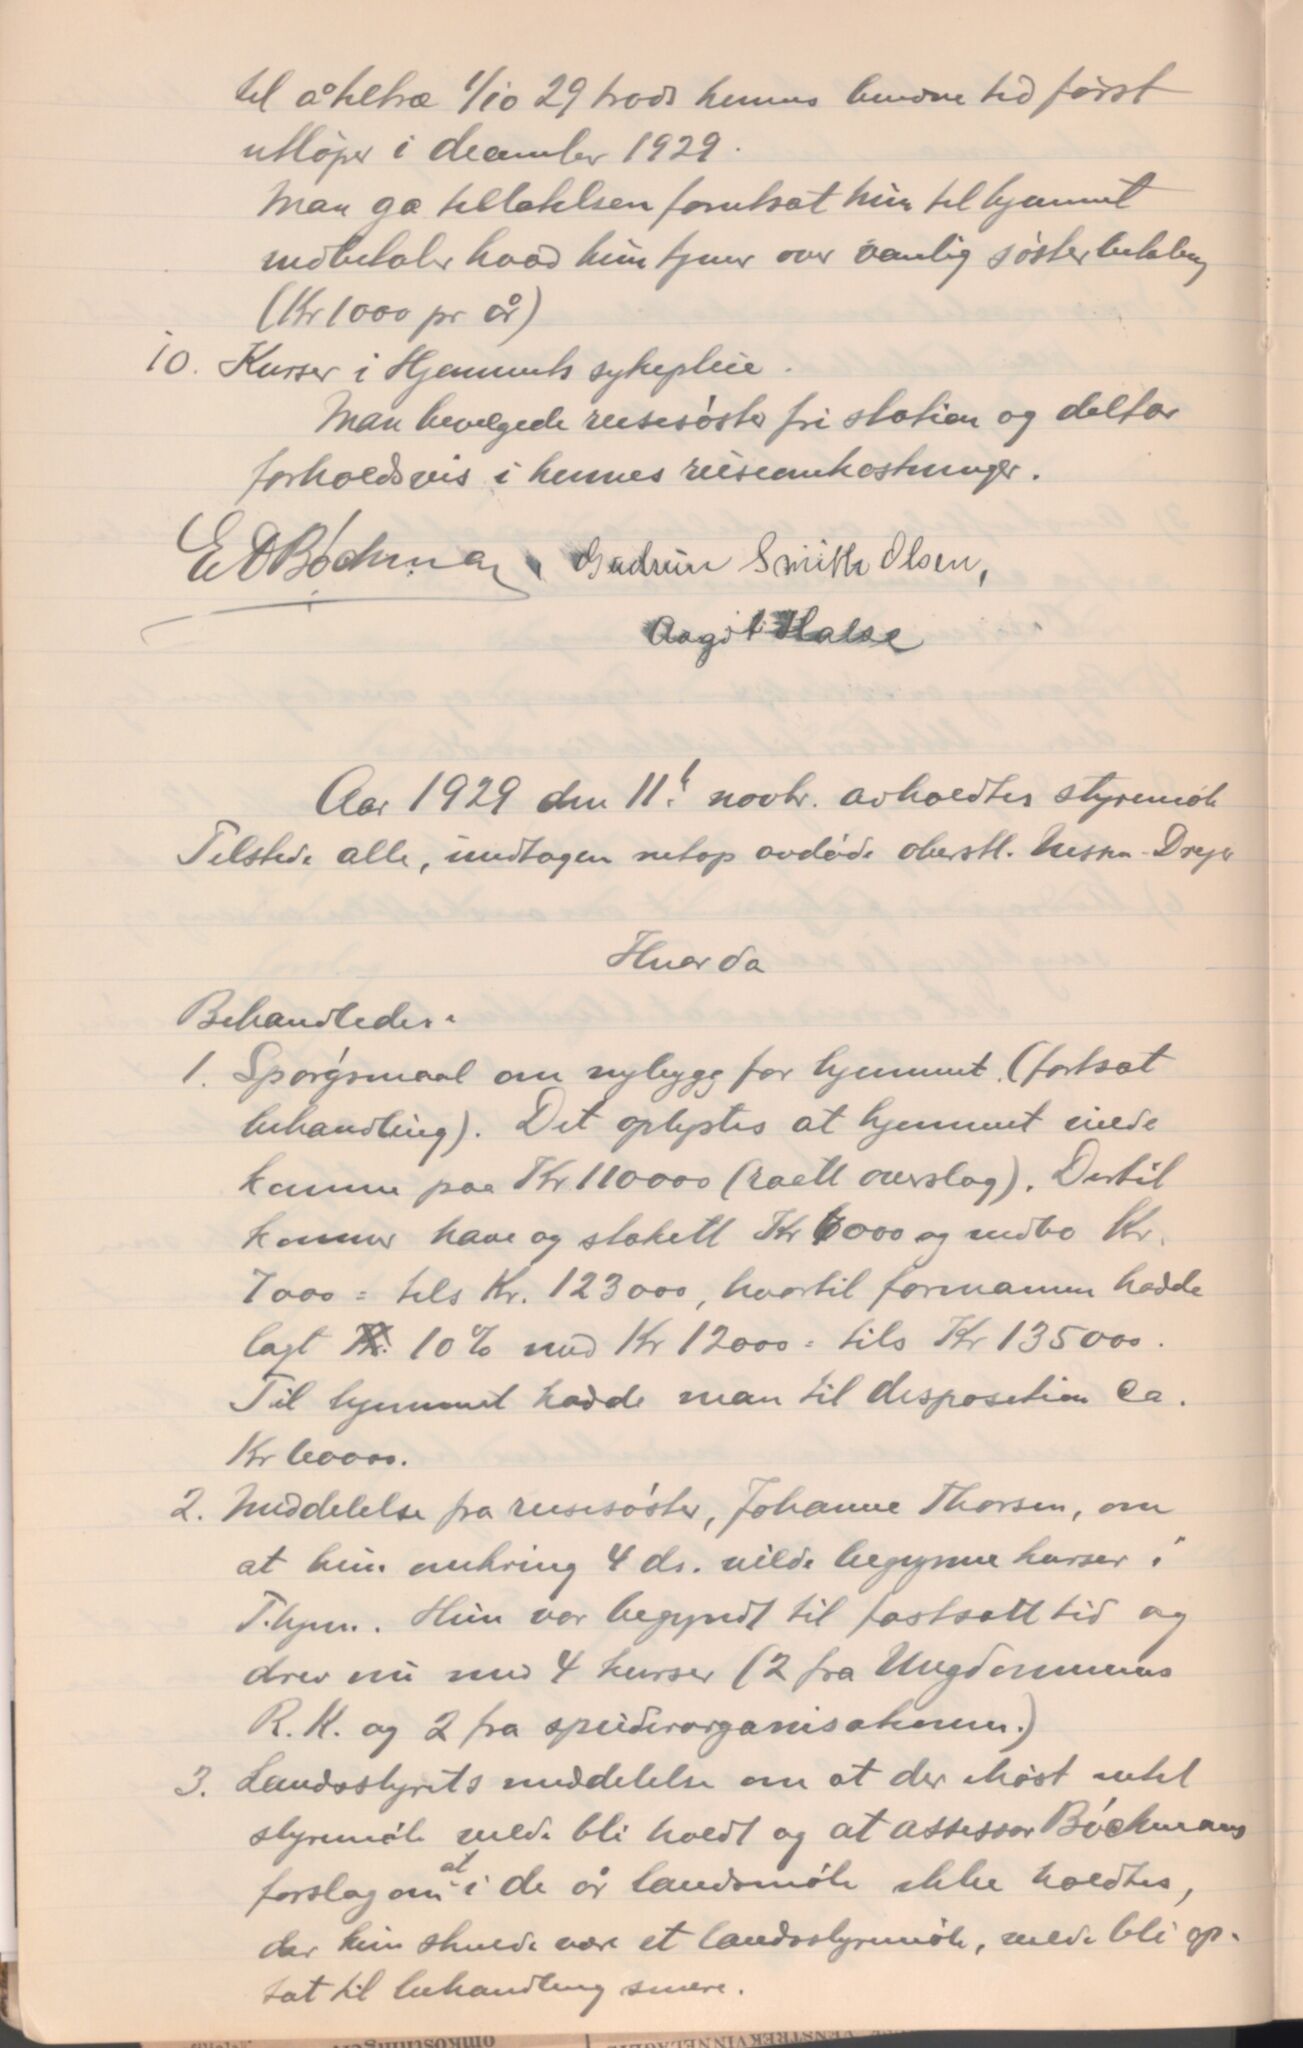 til å tiltræ 1/10 29 trods hennes bundne tid først
utløper i december 1929.
Man ga tillatelsen forutsat hun til hjemmet
indbetaler hvad hun tjener over vanlig søsterbetaling
(Kr 1000 pr år)
10. Kurser i Hjemmets sykepleie.
Man bevilgede reisesøster fri station og deltar
forholdsvis i hennes reiseomkostninger.
E D Bøckman, Gudrun Smith Olsen,
Aagot Halse
Aar 1929 den 11t novbr. avholdtes styremøte
Tilstede alle, undtagen netop avdøde oberstl. Dreyer
Hvorda
Behandledes:
1. Spørgsmaal om nybygg for hjemmet. (fortsat
behandling). Det oplystes at hjemmet vilde
komme paa Kr 110000 (raatt overslag). Dertil
kommer have og stakett Kr 6000 og indbo Kr.
7000 = tils Kr. 123000, hvortil formannen hadde
lagt 10% med Kr 12000 = tils Kr 135000.
Til hjemmet hadde man til disposition ca.
Kr 60000.
2. Meddelelse fra reisesøster, Johanne Thorsen, om
at hun omkring 4 ds. vilde begynne kurser i
T.hjem. Hun var begyndt til fastsatt tid og
drev nu med 4 kurser (2 fra Ungdommens
R.K. og 2 fra speiderorganisationen.)
3. Landsstyrets meddelelse om at der ihøst intet
styremøte vilde bli holdt og at assessor Bøckmans
forslag om at i de år landsmøte ikke holdtes,
der kun skulde være et landsstyremøte, vilde bli op-
tat til behandling senere.
omkostninger
VENSTREKVINNELAGETS